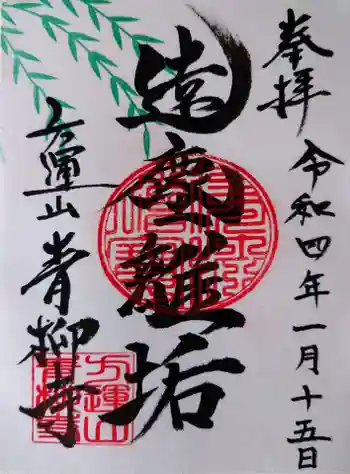 奉拝
令和四年一月十五日
遠塵離垢
方運山
青柳寺